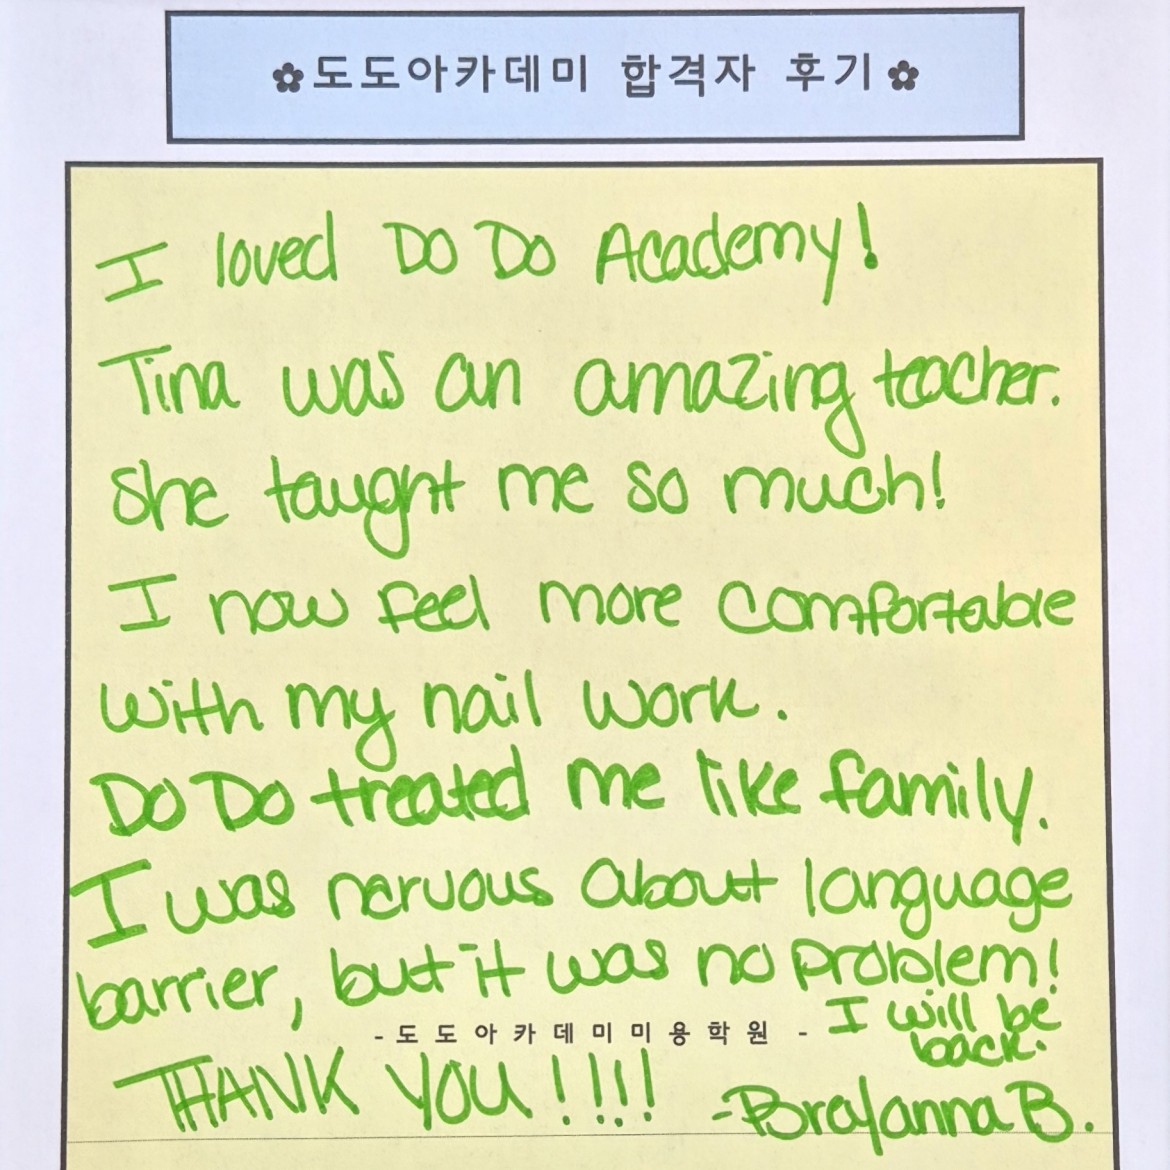 ✿도도아카데미 합격자 후기✿
I loved Do Do Academy!
Tina was an amazing teacher.
She taught me so much!
I now feel more comfortable
with my nail work.
Do Do treated me like family.
I was nervous about language
barrier, but it was no problem!
I will be
back.
- 도도아카데미미용학원 -
THANK YOU!!!!
-Bralyanna B.